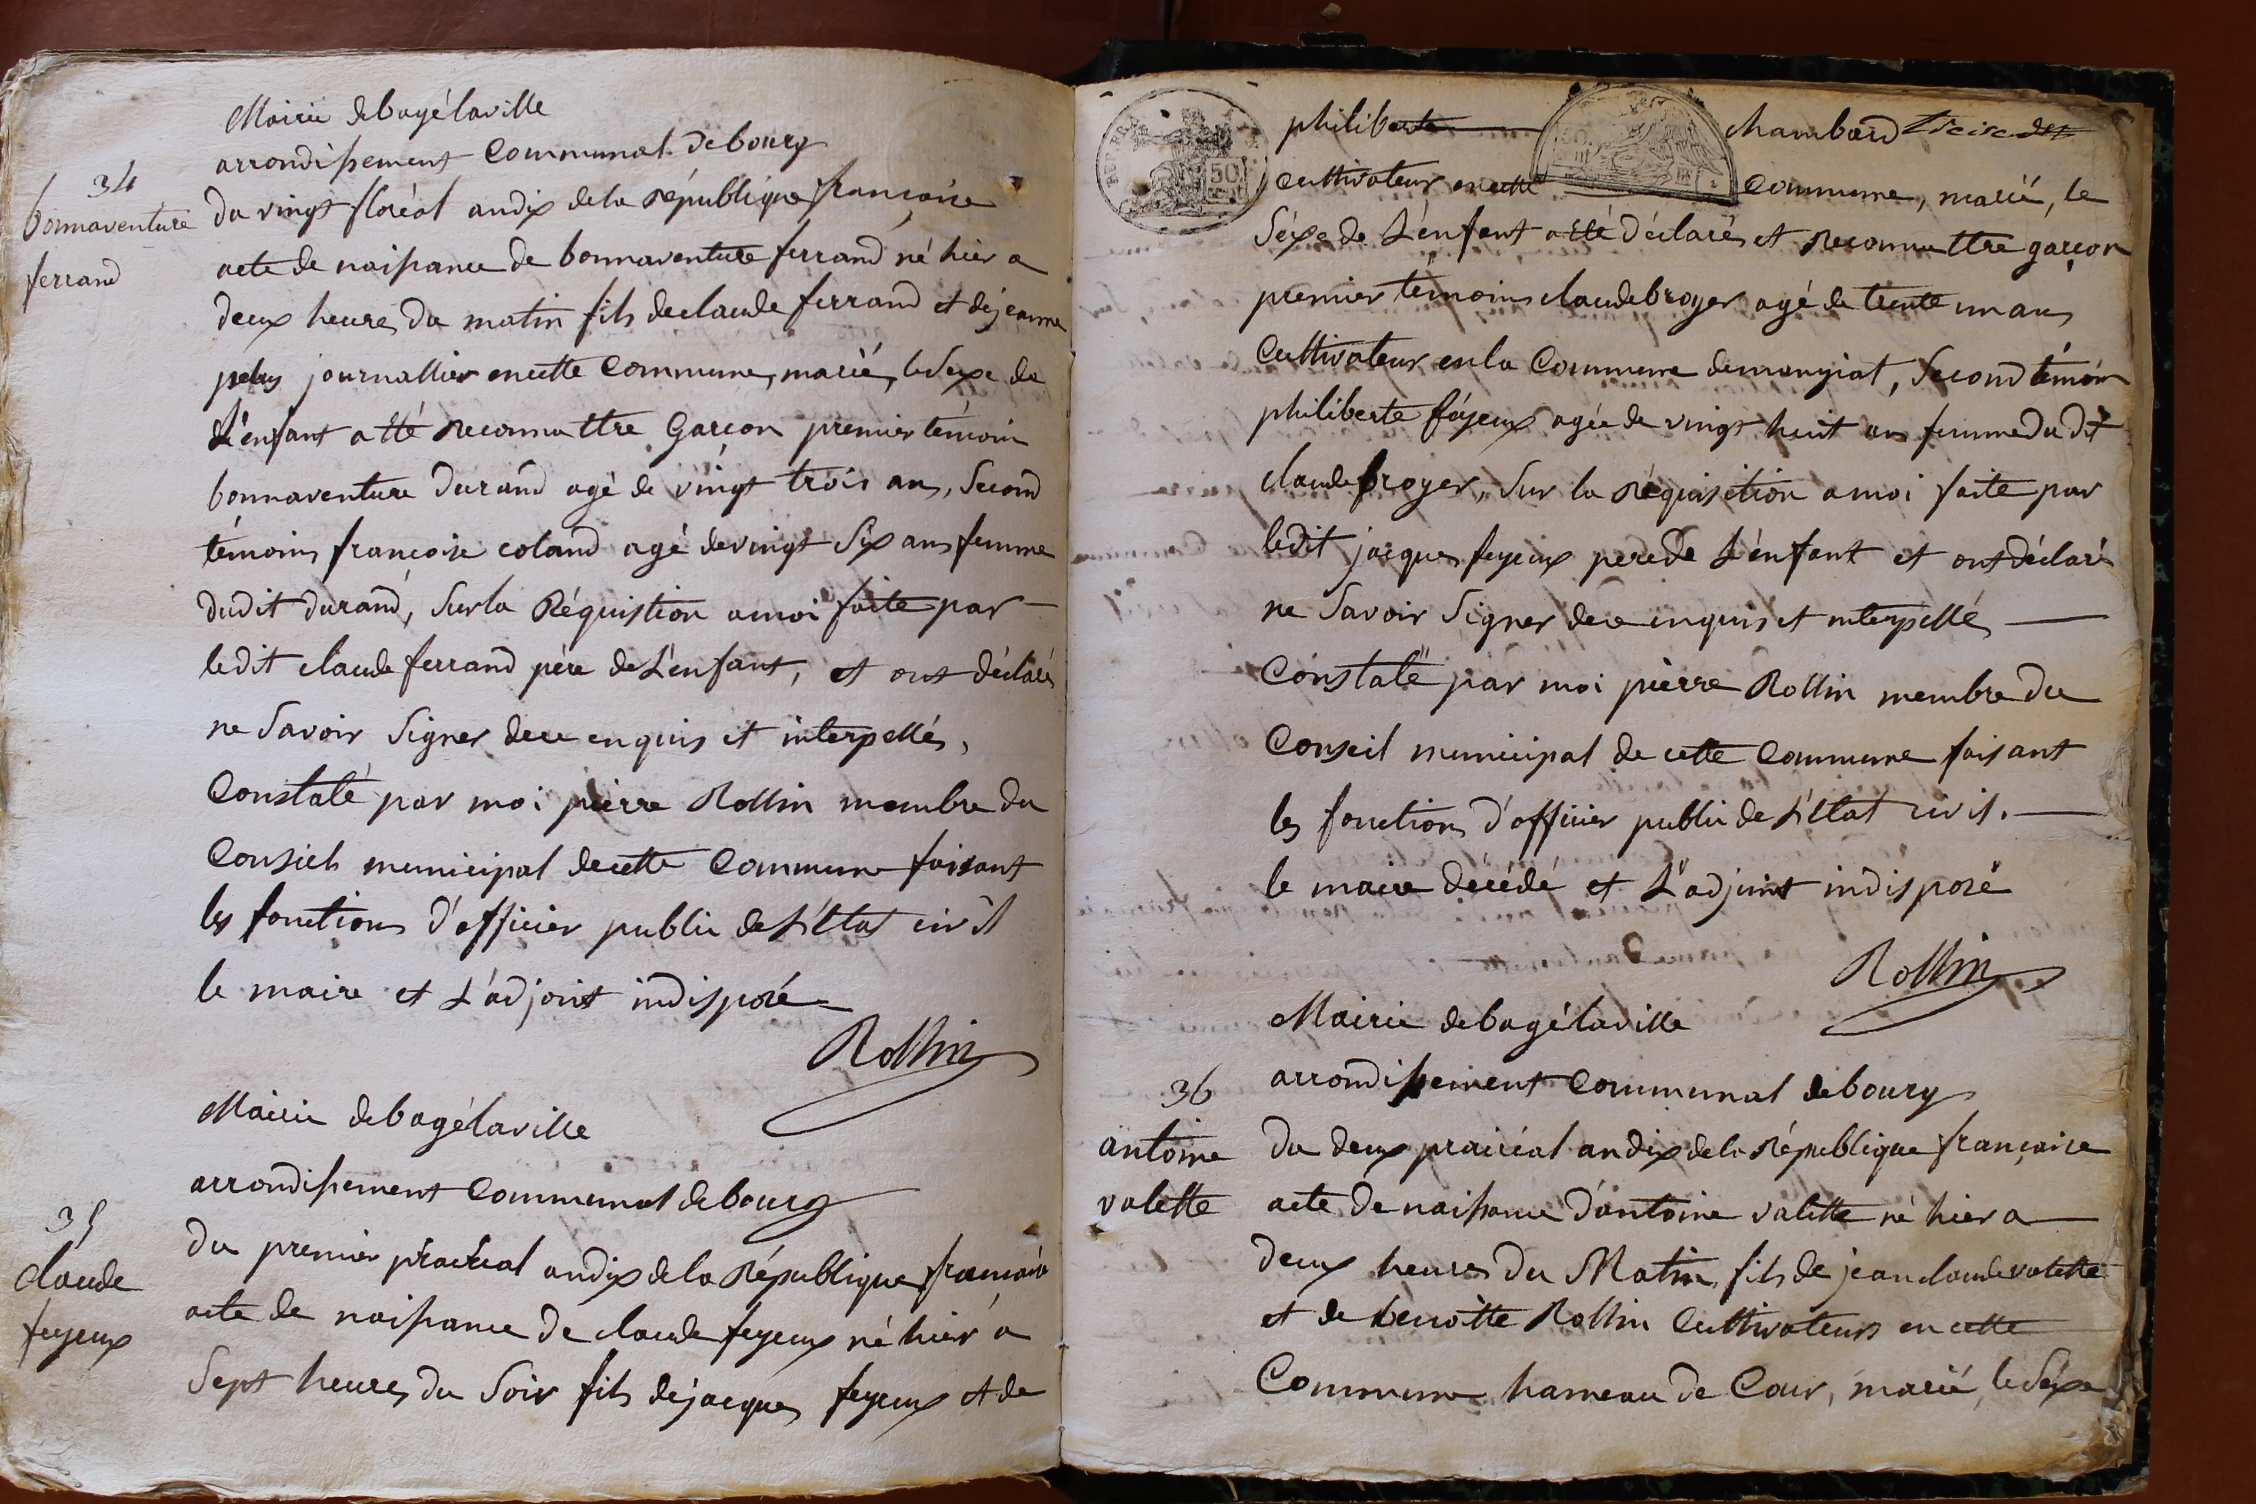 Mairie de bagélaville
arrondissement Communal de bourg
34
bonnaventure
ferrand
du vingt floréal an dix de la république françoise
acte de naissance de bonnaventure ferrand né hier a
deux heures du matin fils de claude ferrand et de jeanne
journallier en cette Commune, marié, le Sexe de
L'enfant a tté reconnuttre Garcon premier témoin
bonnaventure durand agé de vingt trois ans, Second
témoins francoise coland agé de vingt Six ans femme
dudit durand, Sur la Réquistion a moi faite par
ledit claude ferrand père de L'enfant, et ont déclaré
ne Savoir Signer de ce enquis et interpellés,
Constaté par moi pierre Rollin membre du
Conseil municipal de cette Commune faisant
les fonctions d'officier public de L'éttat civil
le maire et L'adjoint indisposé
Rollin
Mairie de bagélaville
arrondissement Communal de bourg
35
claude
feyeux
du premier prairial an dix de la République françoise
acte de naissance de claude feyeux né hier a
Sept heures du Soir fils de jacques feyeux et de
philiberte chambard
REP. FRA
50
cultivateur en cette Commune, marié, le
Séxe de L'énfant a été déclaré et Reconnuttre garçon
premier témoins claude broyer agé de trente un ans
Cultivateur en la Commune de mangiat, Second témoin
philiberte féyeux agée de vingt huit ans femme du dit
claude broyer, Sur la Réquisition a moi faite par
ledit jacques feyeux pere de L'énfant et ont déclaré
ne Savoir Signer de ce enquis et interpellé
Constaté par moi pierre Rollin membre du
Conseil municipal de cette Commune faisant
les fonctions d'officier public de L'état civil.
le maire décédé et L'adjoint indisposé
Rollin
Mairie de bagélaville
arrondissement Communal de bourg
36
antoine
valette
du deux prairéal an dix de la République françoise
acte de naissance d'antoine valette né hier a
deux heures du Matin, fils de jean claude valette
et de benoitte Rollin Cultivateurs en cette
Commune hameau de Cour, marié, le Séxe